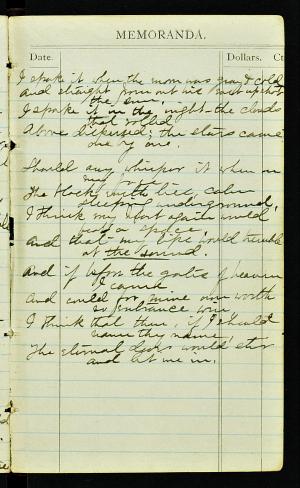 MEMORANDA.
Date. Dollars. Ct
I spoke it when the moon was gray & cold
And straight from out his nest upshot
the sun.
I spoke it in the night – the clouds
that rolled
Above dispersed; the stars came
one by one.
Should any whisper it when on
my
The rocks with lie, calm
sleeping underground,
I think my heart again would
And that my lips would tremble
at the sound.
And if before the gates of heaven
I came
And could for mine own worth
no entrance win,
I think that then, if I should
name thy name,
The eternal doors would stir
and let me in.